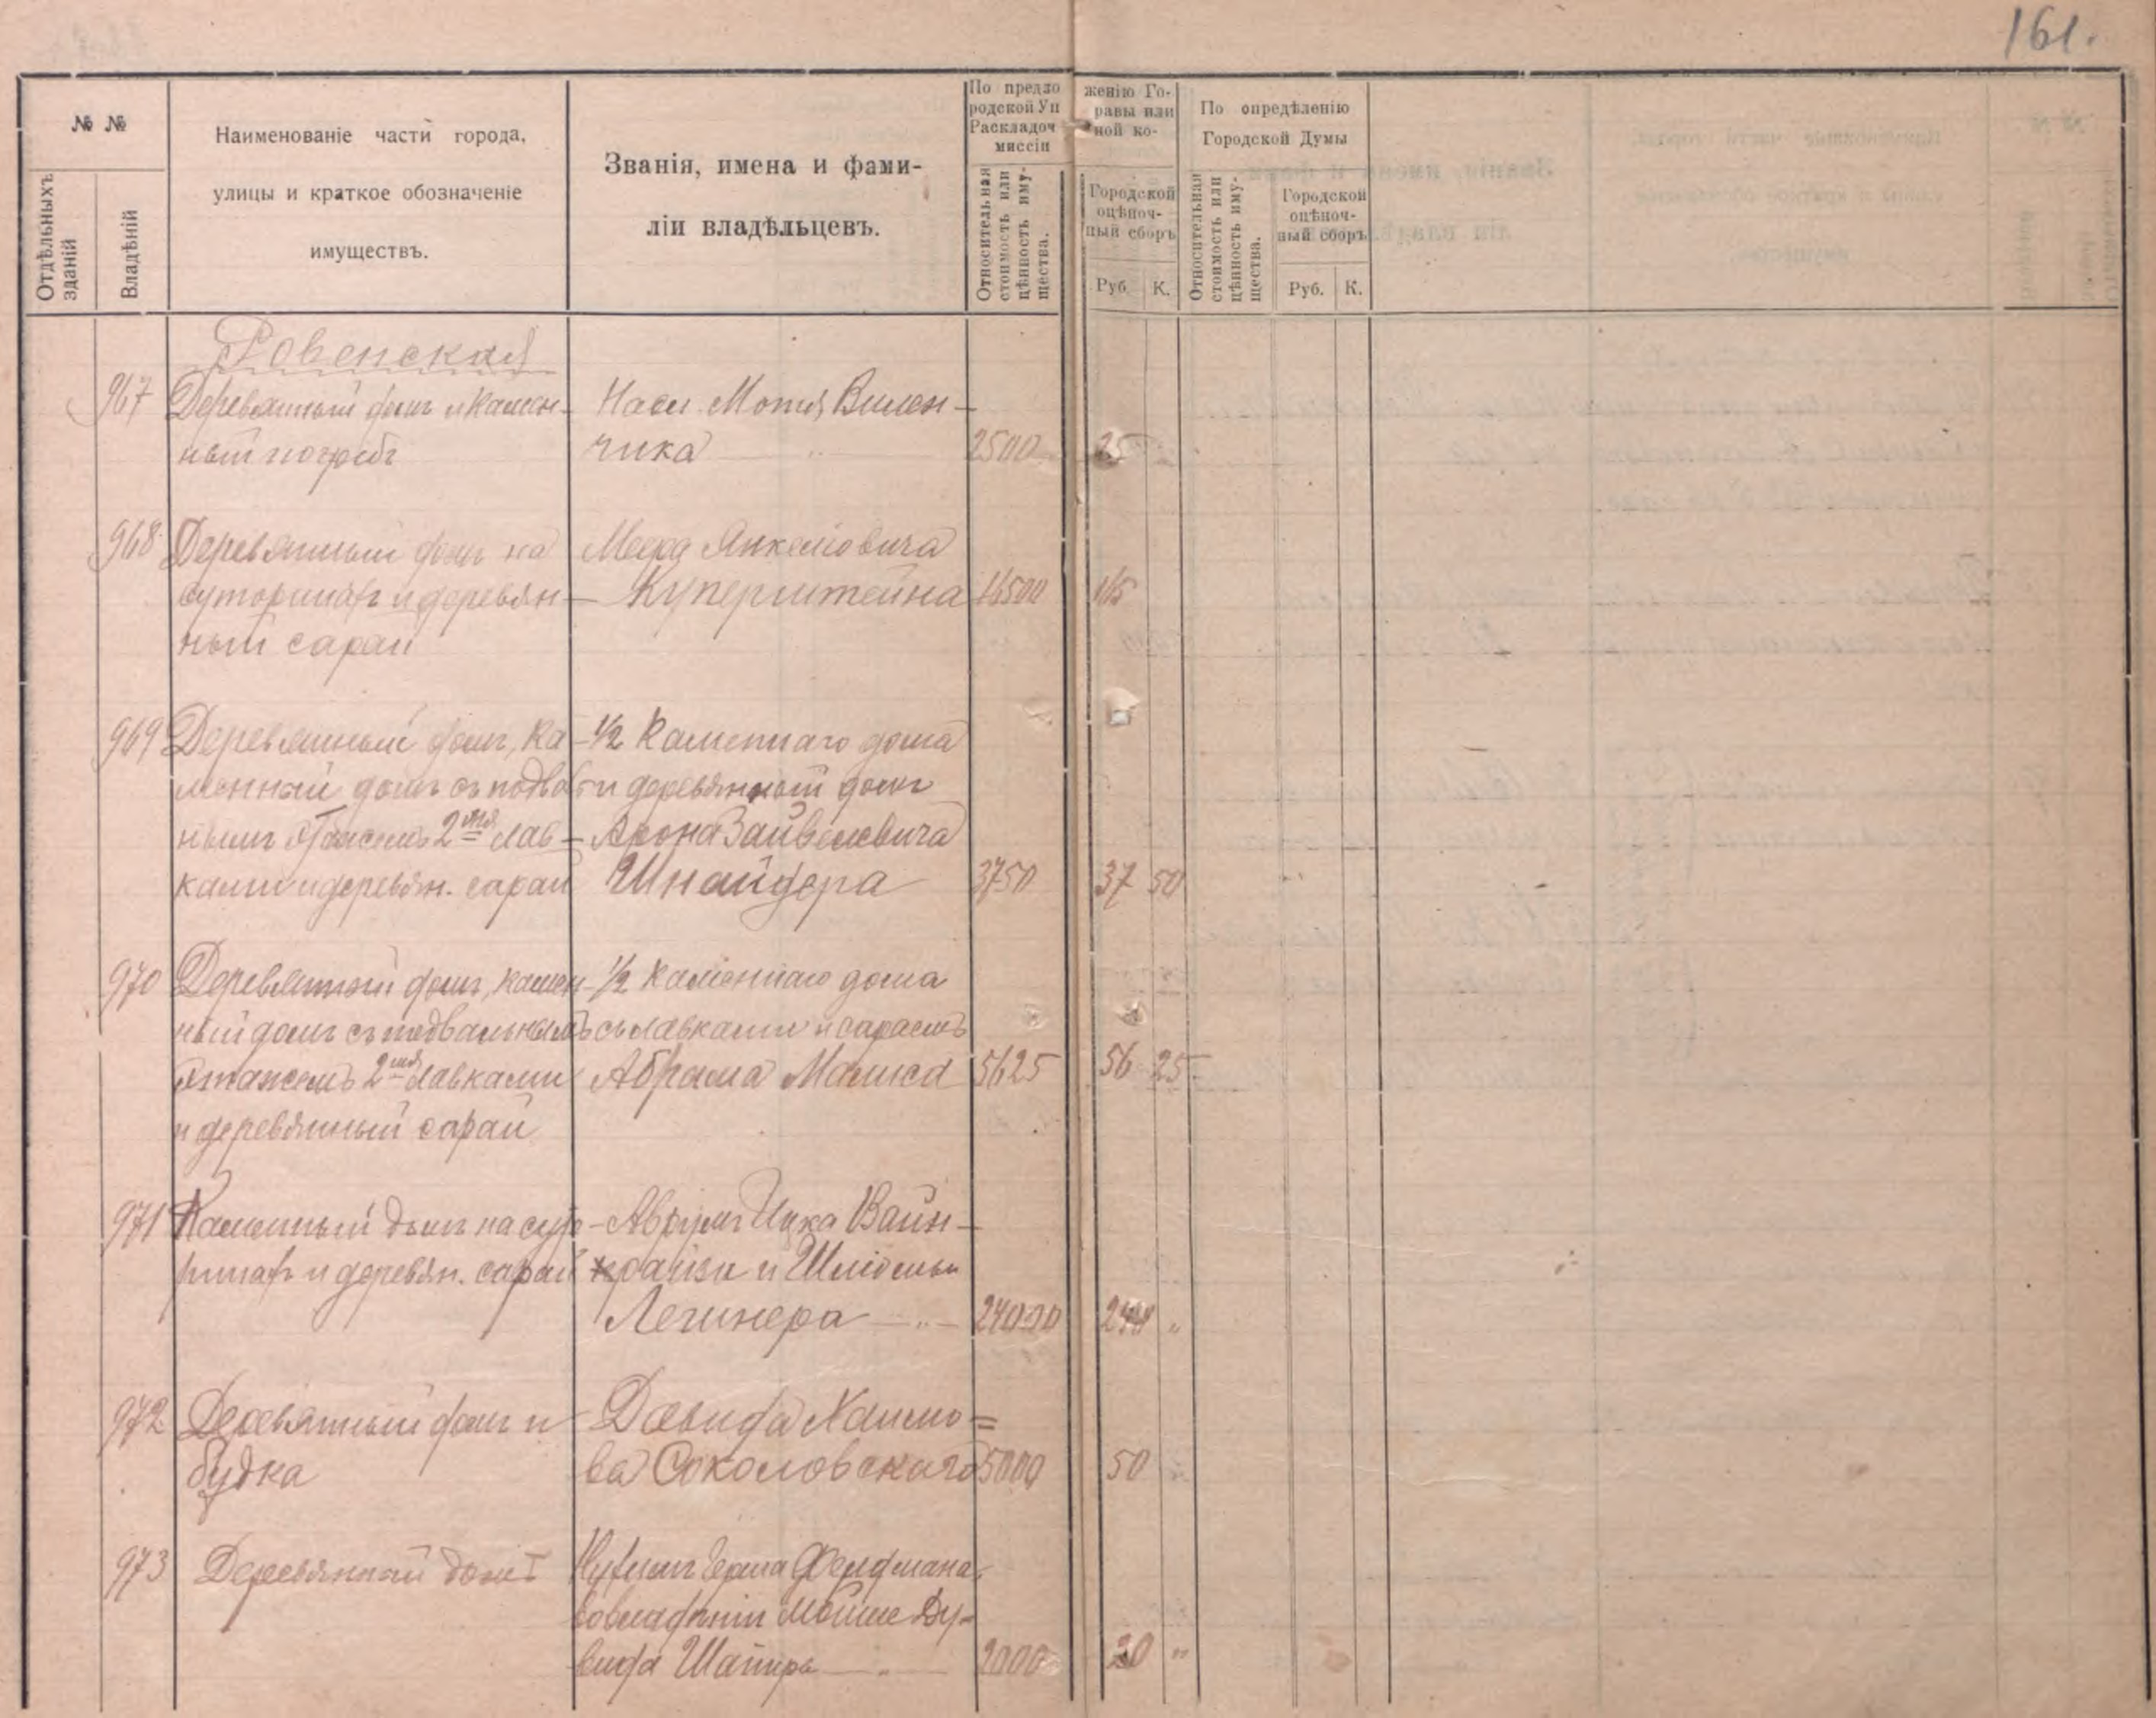 161.
№ №
Отдѣльныхъ зданій
Владѣній
Наименованіе части города,
улицы и краткое обозначеніе
имуществъ.
Званія, имена и фами-
ліи владѣльцевъ.
По предло
родской Уп
Раскладоч
миссіи
женію Го-
равы или
ной ко-
Относительная
стоимость или
цѣнность иму-
щества.
Городской
оцѣноч-
ный сборъ
Руб. К.
По опредѣленію
Городской Думы
Относительная
стоимость или
цѣнность иму-
щества.
Городской
оцѣноч-
ный сборъ
Руб. К.
Ровенская
967 Деревянный домъ и камен-
ный погребъ
Мотя Вилен-
чика 2500 25
968 Деревянный домъ на
суторинахъ и деревян-
ный сарай
Меера Янкелiовича
Куперштейна 16500 165
969 Деревянный домъ, ка-
менный домъ съ подваль-
нымъ этажемъ 2мя лав-
ками и деревян. сарай
1/2 каменнаго дома
и деревянный домъ
Арона Зайвелевича
Шнайдера 3750 37 50
970 Деревянный домъ, камен-
ный домъ съ подвальнымъ
этажемъ 2мя лавками
и деревянный сарай
1/2 каменнаго дома
съ лавками и сараемъ
Абрама 5625 56 25
971 Каменный домъ на суто-
ринахъ и деревян. сарай
Аврумъ Ицка Вайн-
и Шліомы
Легинера 24000 240 "
972 Деревянный домъ и
будка
Давида Хаимо=
ва Соколовскаго 5000 50
973 Деревянный домъ
Фельдмана
Мойше Ду-
вида Шапира 2000 20 "